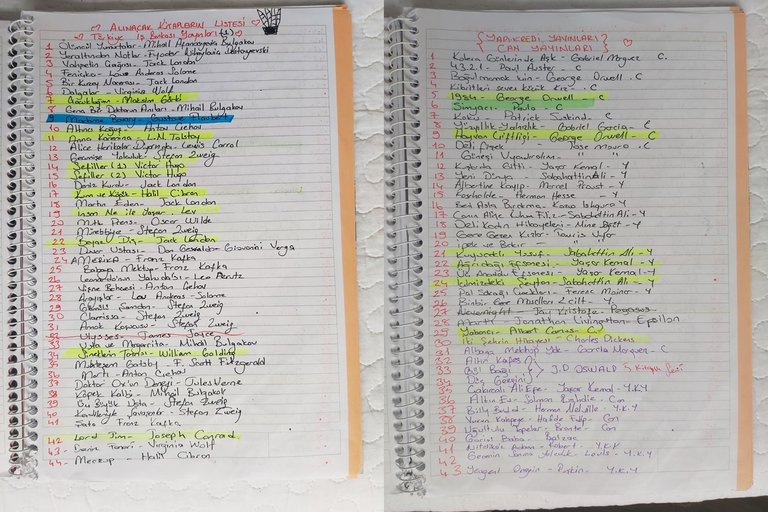 ALINACAK KİTAPLARIN LİSTESİ
Türkiye İş Bankası Yayınları (1)
1 Ölümcül Yumurtalar - Mihail Afanasyeviç Bulgakov
2 Yeraltından Notlar - Fyodor Mihaylovic Dostoyevski
3 Vahşetin Çağrısı - Jack London
4 Feniçka - Lou Andreas Salome
5 Bir Kuzey Macerası - Jack London
6 Dalgalar - Virginia Wolf
7 Çocukluğum - Maksim Gorki
8 Genç Bir Doktorun Anıları - Mihail Bulgakov
9 Madame Bovary - Gustave Flaubert
10 Altıncı Koğuş - Anton Çehov
11 Anna Karenina - L.N. Tolstoy
12 Alice Harikalar Diyarında - Lewis Carrol
13 Geçmişe Yolculuk - Stefan Zweig
14 Sefiller (1) Victor Hugo
15 Sefiller (2) Victor Hugo
16 Deniz Kurdu - Jack London
17 Kum ve Köpük - Halil Cibran
18 Martin Eden - Jack London
19 İnsan Ne ile Yaşar - Lev
20 Mutlu Prens - Oscar Wilde
21 Mürebbiye - Stefan Zweig
22 Beyaz Diş - Jack London
23 Duvar Ustası - Don Gesualdo Giovanni Verga
24 AMERİKA - Franz Kafka
25 Babaya Mektup - Franz Kafka
26 Leonardo'nun Yahudası - Leo Perutz
27 Vişne Bahçesi - Anton Çehov
28 Lou Andreas - Salome
29 Stefan Zweig
30 Clarissa - Stefan Zweig
31 Amok Koşucusu - Stefan Zweig
32 Ulysses - James Joyce
33 Usta ve Margarita - Mihail Bulgakov
34 Sineklerin Tanrısı - William Golding
35 Muhteşem Gatsby - F. Scott Fitzgerald
36 Martı - Anton Çehov
37 Doktor Ox'un Deneyi - Jules Verne
38 Köpek Kalbi - Mihail Bulgakov
39 Üç Büyük Usta - Stefan Zweig
40 Kendileriyle Savaşanlar - Stefan Zweig
41 Şato Franz Kafka
42 Lord Jim - Joseph Conrad
43 - Deniz Feneri - Virginia Wolf
44 - Meczup - Halil Cibran
{YAPI KREDİ YAYINLARI}
{CAN YAYINLARI}
1 Kolera Günlerinde Aşk - Gabriel Marquez C.
2 4.3.2.1. - Paul Auster - C
3 Boğulmamak İçin - George Orwell - C
4 Kibritleri seven küçük kız - C
5 1984 - George Orwell - C
6 Simyacı - Paulo - C
7 Koku - Patrick Süskind - C
8 Yüzyıllık Yalnızlık - Gabriel Garcia - C
9 Hayvan Çiftliği - George Orwell - C
10 Deli Jose Mauro - C
11 Güneşi Uyandıralım - " "
12 Yaşar Kemal - Y
13 Yeni Dünya - Sabahattin Ali - Y
14 Albertine Kayıp - Marcel Proust - Y
15 Herman Hesse
16 Beni Asla Bırakma - Kazuo Ishiguro Y
17 Sabahattin Ali - Y
18 Deli Kadın Hikayeleri - Mine Söğüt - Y
19 Gece Gelen Kızlar
20
21 Kuyucaklı Yusuf - Sabahattin Ali - Y
22 Ağrıdağı Efsanesi - Yaşar Kemal - Y
23 Üç Anadolu Efsanesi - Yaşar Kemal - Y
24 İçimizdeki Şeytan - Sabahattin Ali - Y
25 Pal Sokağı Çocukları - Ferenc Molnar - Y
26 Binbir Gece Masalları 2 cilt - Y
27 Nevernight - Jay Kristoff - Pegasus
28 Martı Jonathan Livingston - Epsilon
29 Yabancı - Albert Camus - C
30 İki Şehrin Hikayesi - Charles Dickens
31 Albaya Mektup Yok - Garcia Marquez - C
32 Altın
33 J.D OSWALD 5 kitaplık seri
34
35 Yaşar Kemal - Y.K.Y
36 Can
37 Billy Budd - Herman Melville - Y.K.Y
38 Can
39 Uğultulu Tepeler - Bronte - Can
40 Goriot Baba - Balzac
41 Robert - Y.K.Y
42 Louis - Y.K.Y
43 Yevgeni Onegin - Puşkin - Y.K.Y